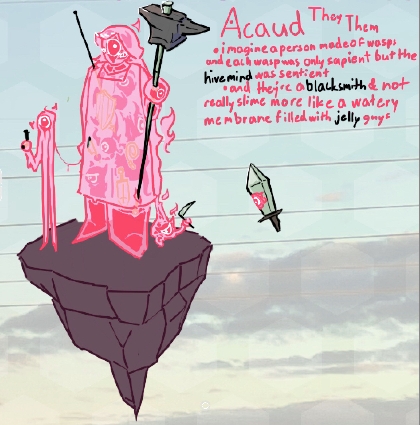 Acaud They Them
• imagine a person made of wasps
and each wasp was only sapient but the
hivemind was sentient
• and they're a blacksmith & not
really slime more like a watery
membrane filled with jelly guys